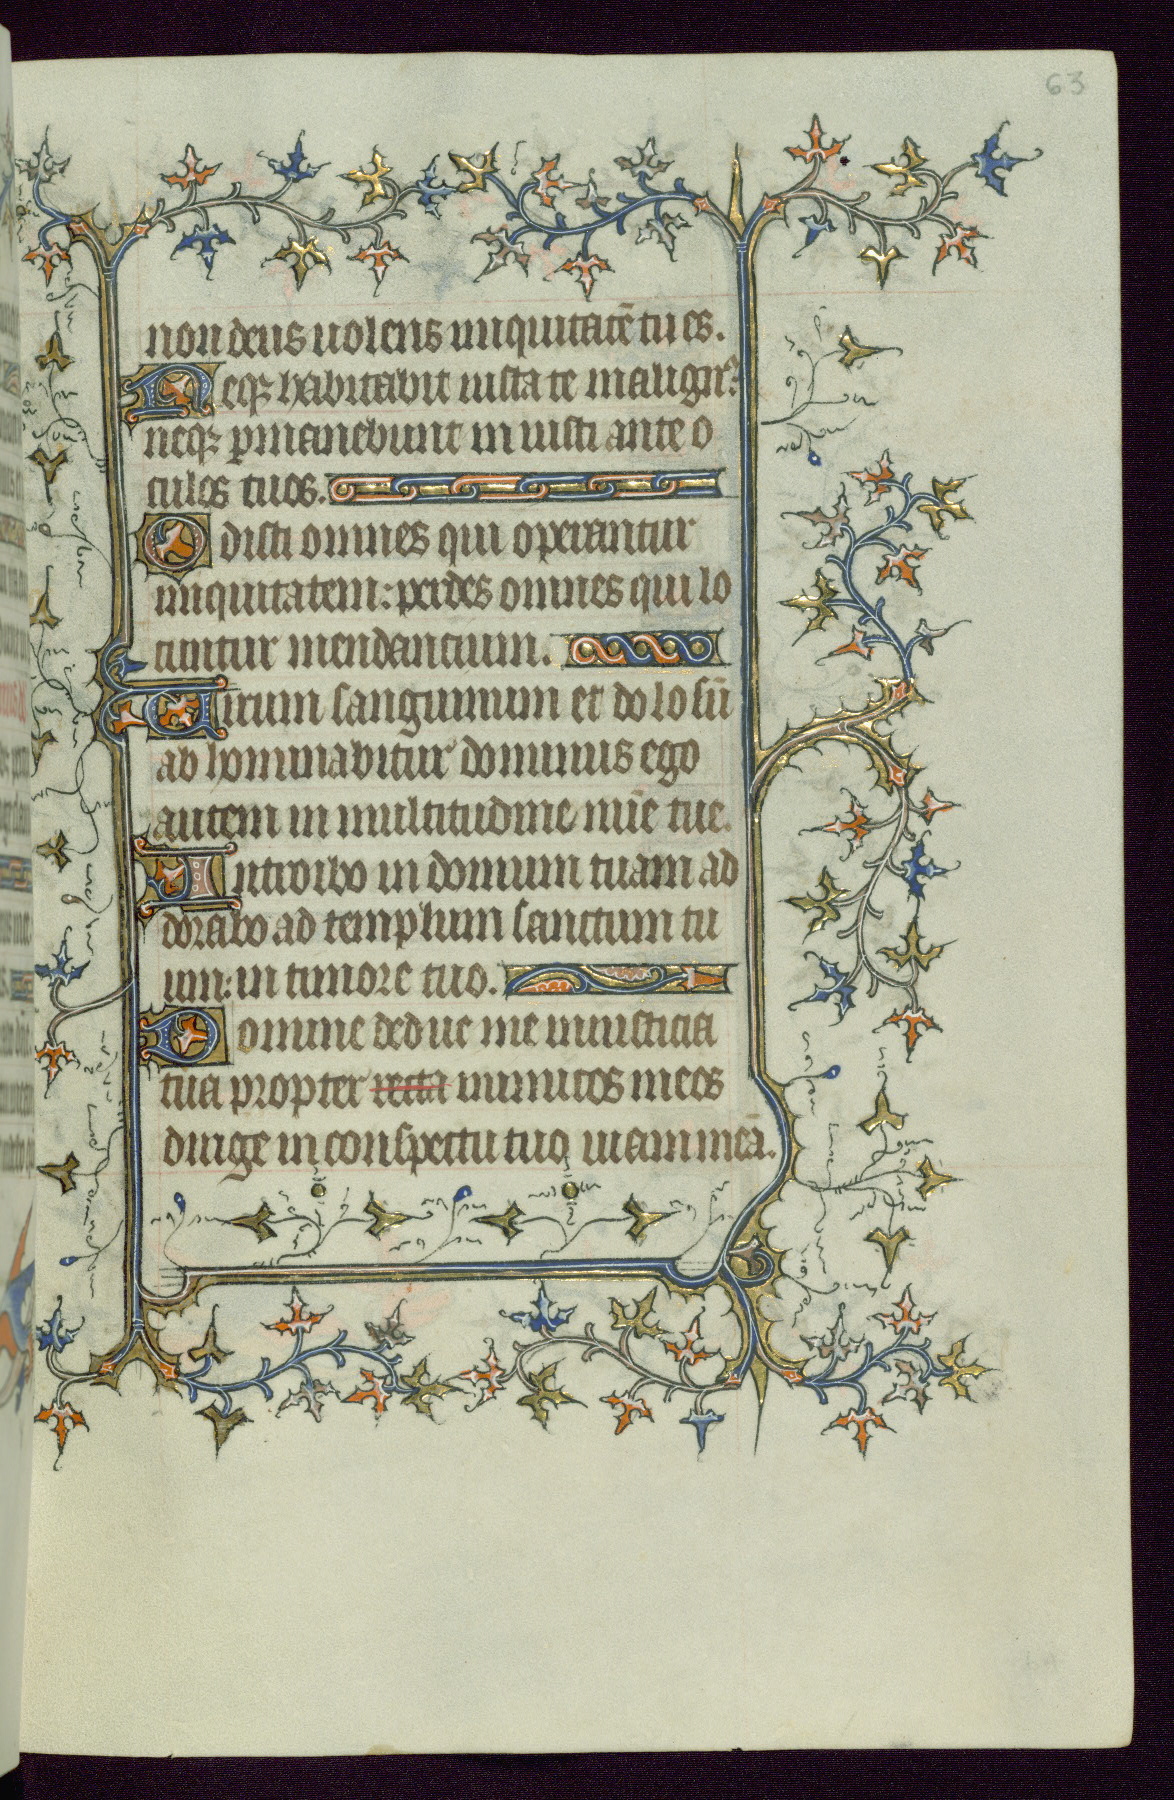 63
non deus uolens iniquitatē tu es.
Neqꝫ habitabit iuxta te malignꝰ
neqꝫ ꝑmanebunt iniusti ante o
culos tuos.
Odisti omnes qui operantur
iniquitatem: perdes omnes qui lo
cuntur mendancium.
Uirum sanguinum et dolosū
abhominabitur dominus ego
autem in multitudine mīe tue.
Introibo in domum tuam ad
dorabo ad templum sanctum tu
um: in timore tuo.
Domine deduc me in iusticia
tua propter recta inimicos meos
dirige in conspectu tuo uiam meā.